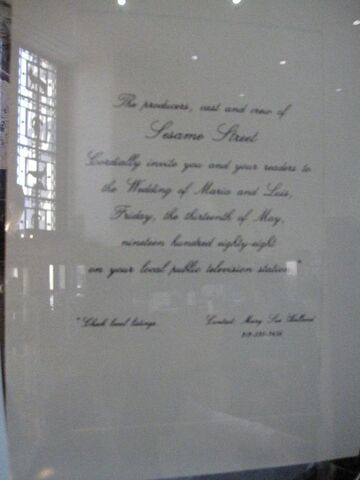 The producers, cast and crew of
Sesame Street
Cordially invite you and your readers to
the Wedding of Maria and Luis,
Friday, the thirteenth of May,
nineteen hundred eighty-eight
on your local public television station*
*Check local listings. Contact: Mary Sue